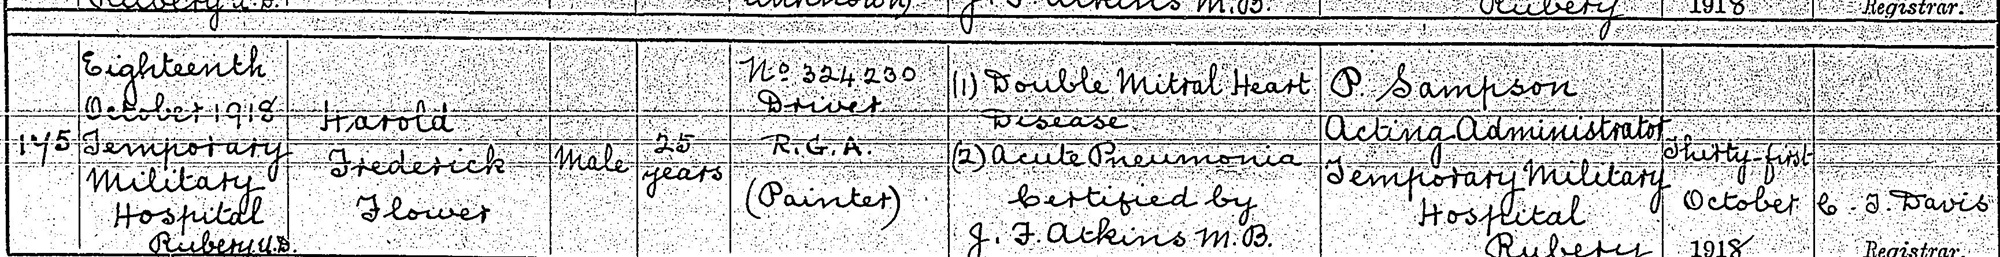 Rubery U.D.
unknown)
J. F. Atkins M.B.
Rubery
1918
Registrar.
175
Eighteenth
October 1918
Temporary
Military
Hospital
Rubery U.D.
Harold
Frederick
Flower
Male
25
years
No 324230
Driver
R.G.A.
(Painter)
(1) Double Mitral Heart
Disease
(2) Acute Pneumonia
Certified by
J. F. Atkins M.B.
P. Sampson
Acting Administrator
Temporary Military
Hospital
Rubery
Thirty-first
October
1918
C. J. Davis
Registrar.